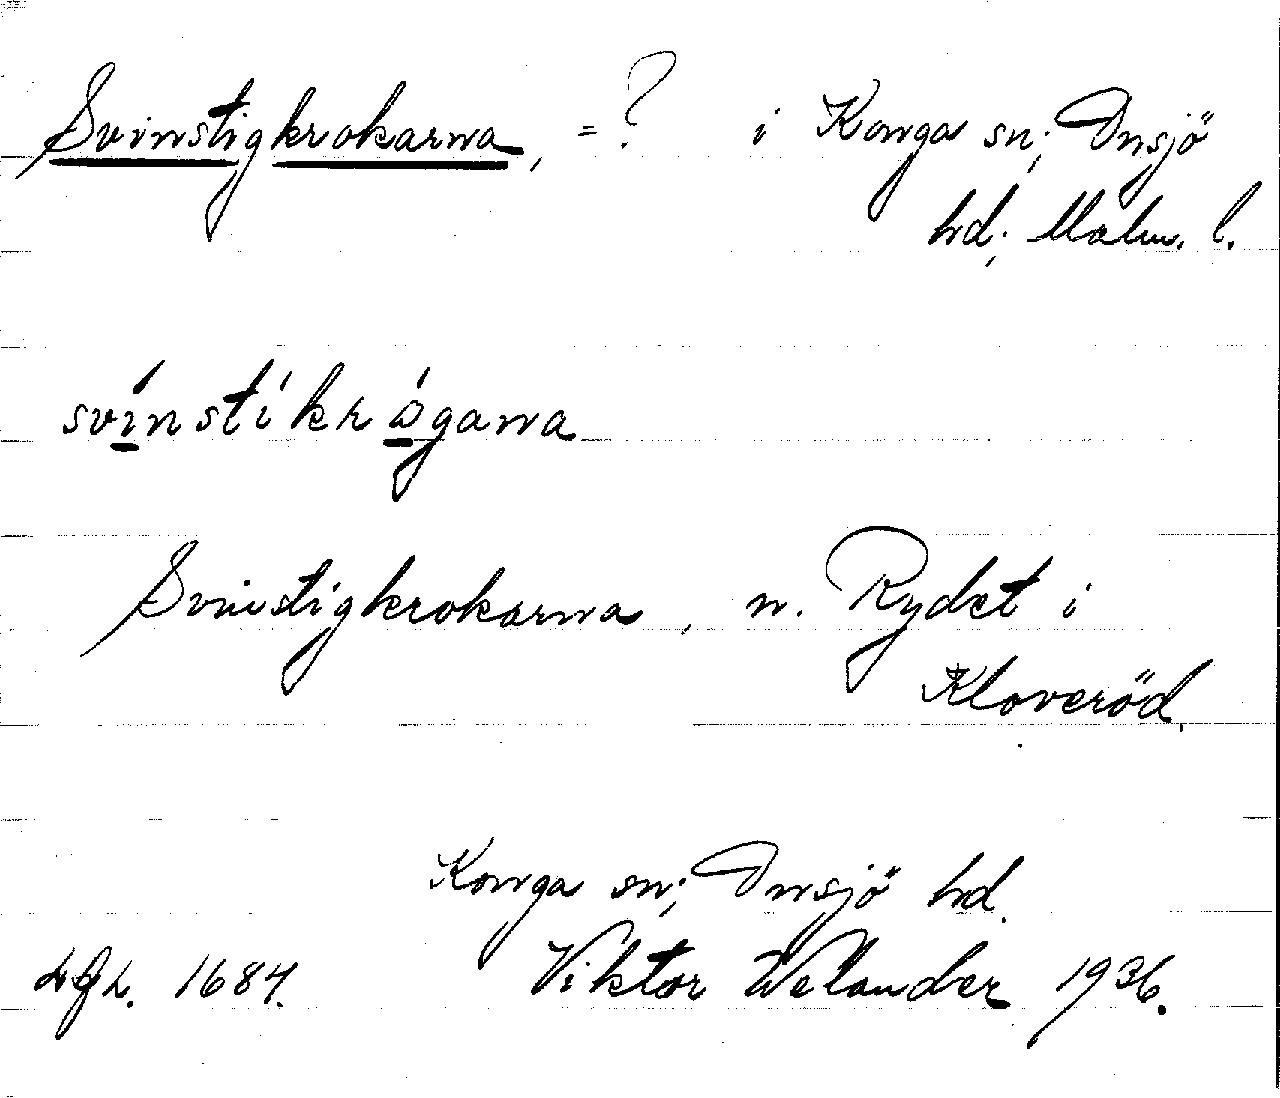 Svinstigkrokarna, = ? i Konga sn; Onsjö
hd; Malm. l.
svínstíkrógarna
Svinstigkrokarna, n. Rydet i
Kloveröd.
Konga sn; Onsjö hd.
1684. Viktor Welander 1936.